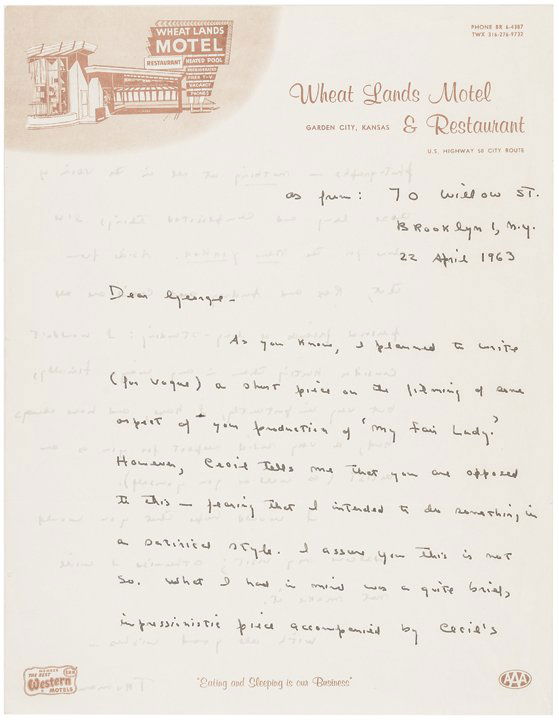 WHEAT LANDS
MOTEL
RESTAURANT
HEATED POOL
REFRIGERATED
FREE T-V
VACANCY
PHONES
PHONE BR 6-4387
TWX 316-276-9732
Wheat Lands Motel
GARDEN CITY, KANSAS & Restaurant
U.S. HIGHWAY 50 CITY ROUTE
as from: 70 Willow St.
Brooklyn 1, N.Y.
22 April 1963
Dear George -
As you know, I planned to write
(for Vogue) a short piece on the filming of some
aspect of your production of 'My Fair Lady.'
However, Cecil tells me that you are opposed
to this — fearing that I intended to do something in
a satirical style. I assure you this is not
so. What I had in mind was a quite brief,
impressionistic piece accompanied by Cecil's
MEMBER
THE BEST
Western
MOTELS
"Eating and Sleeping is our Business"
AAA